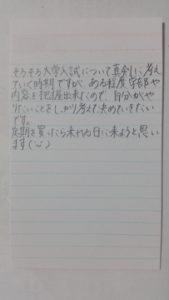 そろそろ大学入試について真剣に考え
ていく時期ですが、ある程度学部や
内容を把握出来たので、自分がや
りたいことをしっかり考えて決めていきたい
です。
定期を買ったら来れる日に来ようと思い
ます(´ω`)